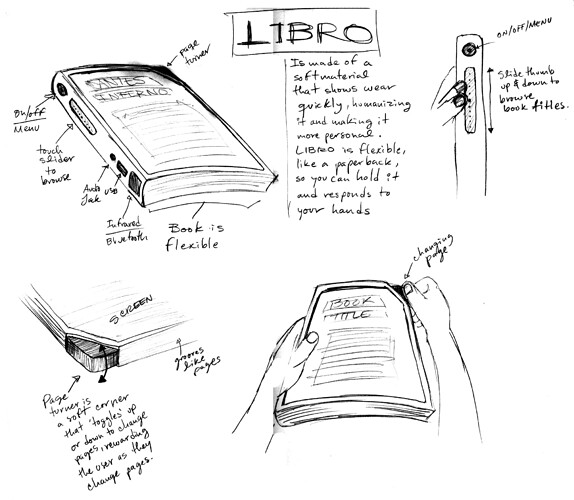 LIBRO
page
turner
Is made of a
soft material
that shows wear
quickly, humanizing
it and making it
more personal.
LIBRO is flexible,
like a paperback,
so you can hold it
and responds to
your hands
ON/OFF/MENU
Slide thumb
up & down to
browse
book titles.
DANTES
INFERNO
On/off
Menu
touch
slider
to
browse
Audio
Jak
USB
Infrared
Bluetooth
Book is
flexible
SCREEN
grooves
like pages
Page
turner is
a soft corner
that 'toggles' up
or down to change
pages, rewarding
the user as they
change pages.
changing
page
BOOK
TITLE